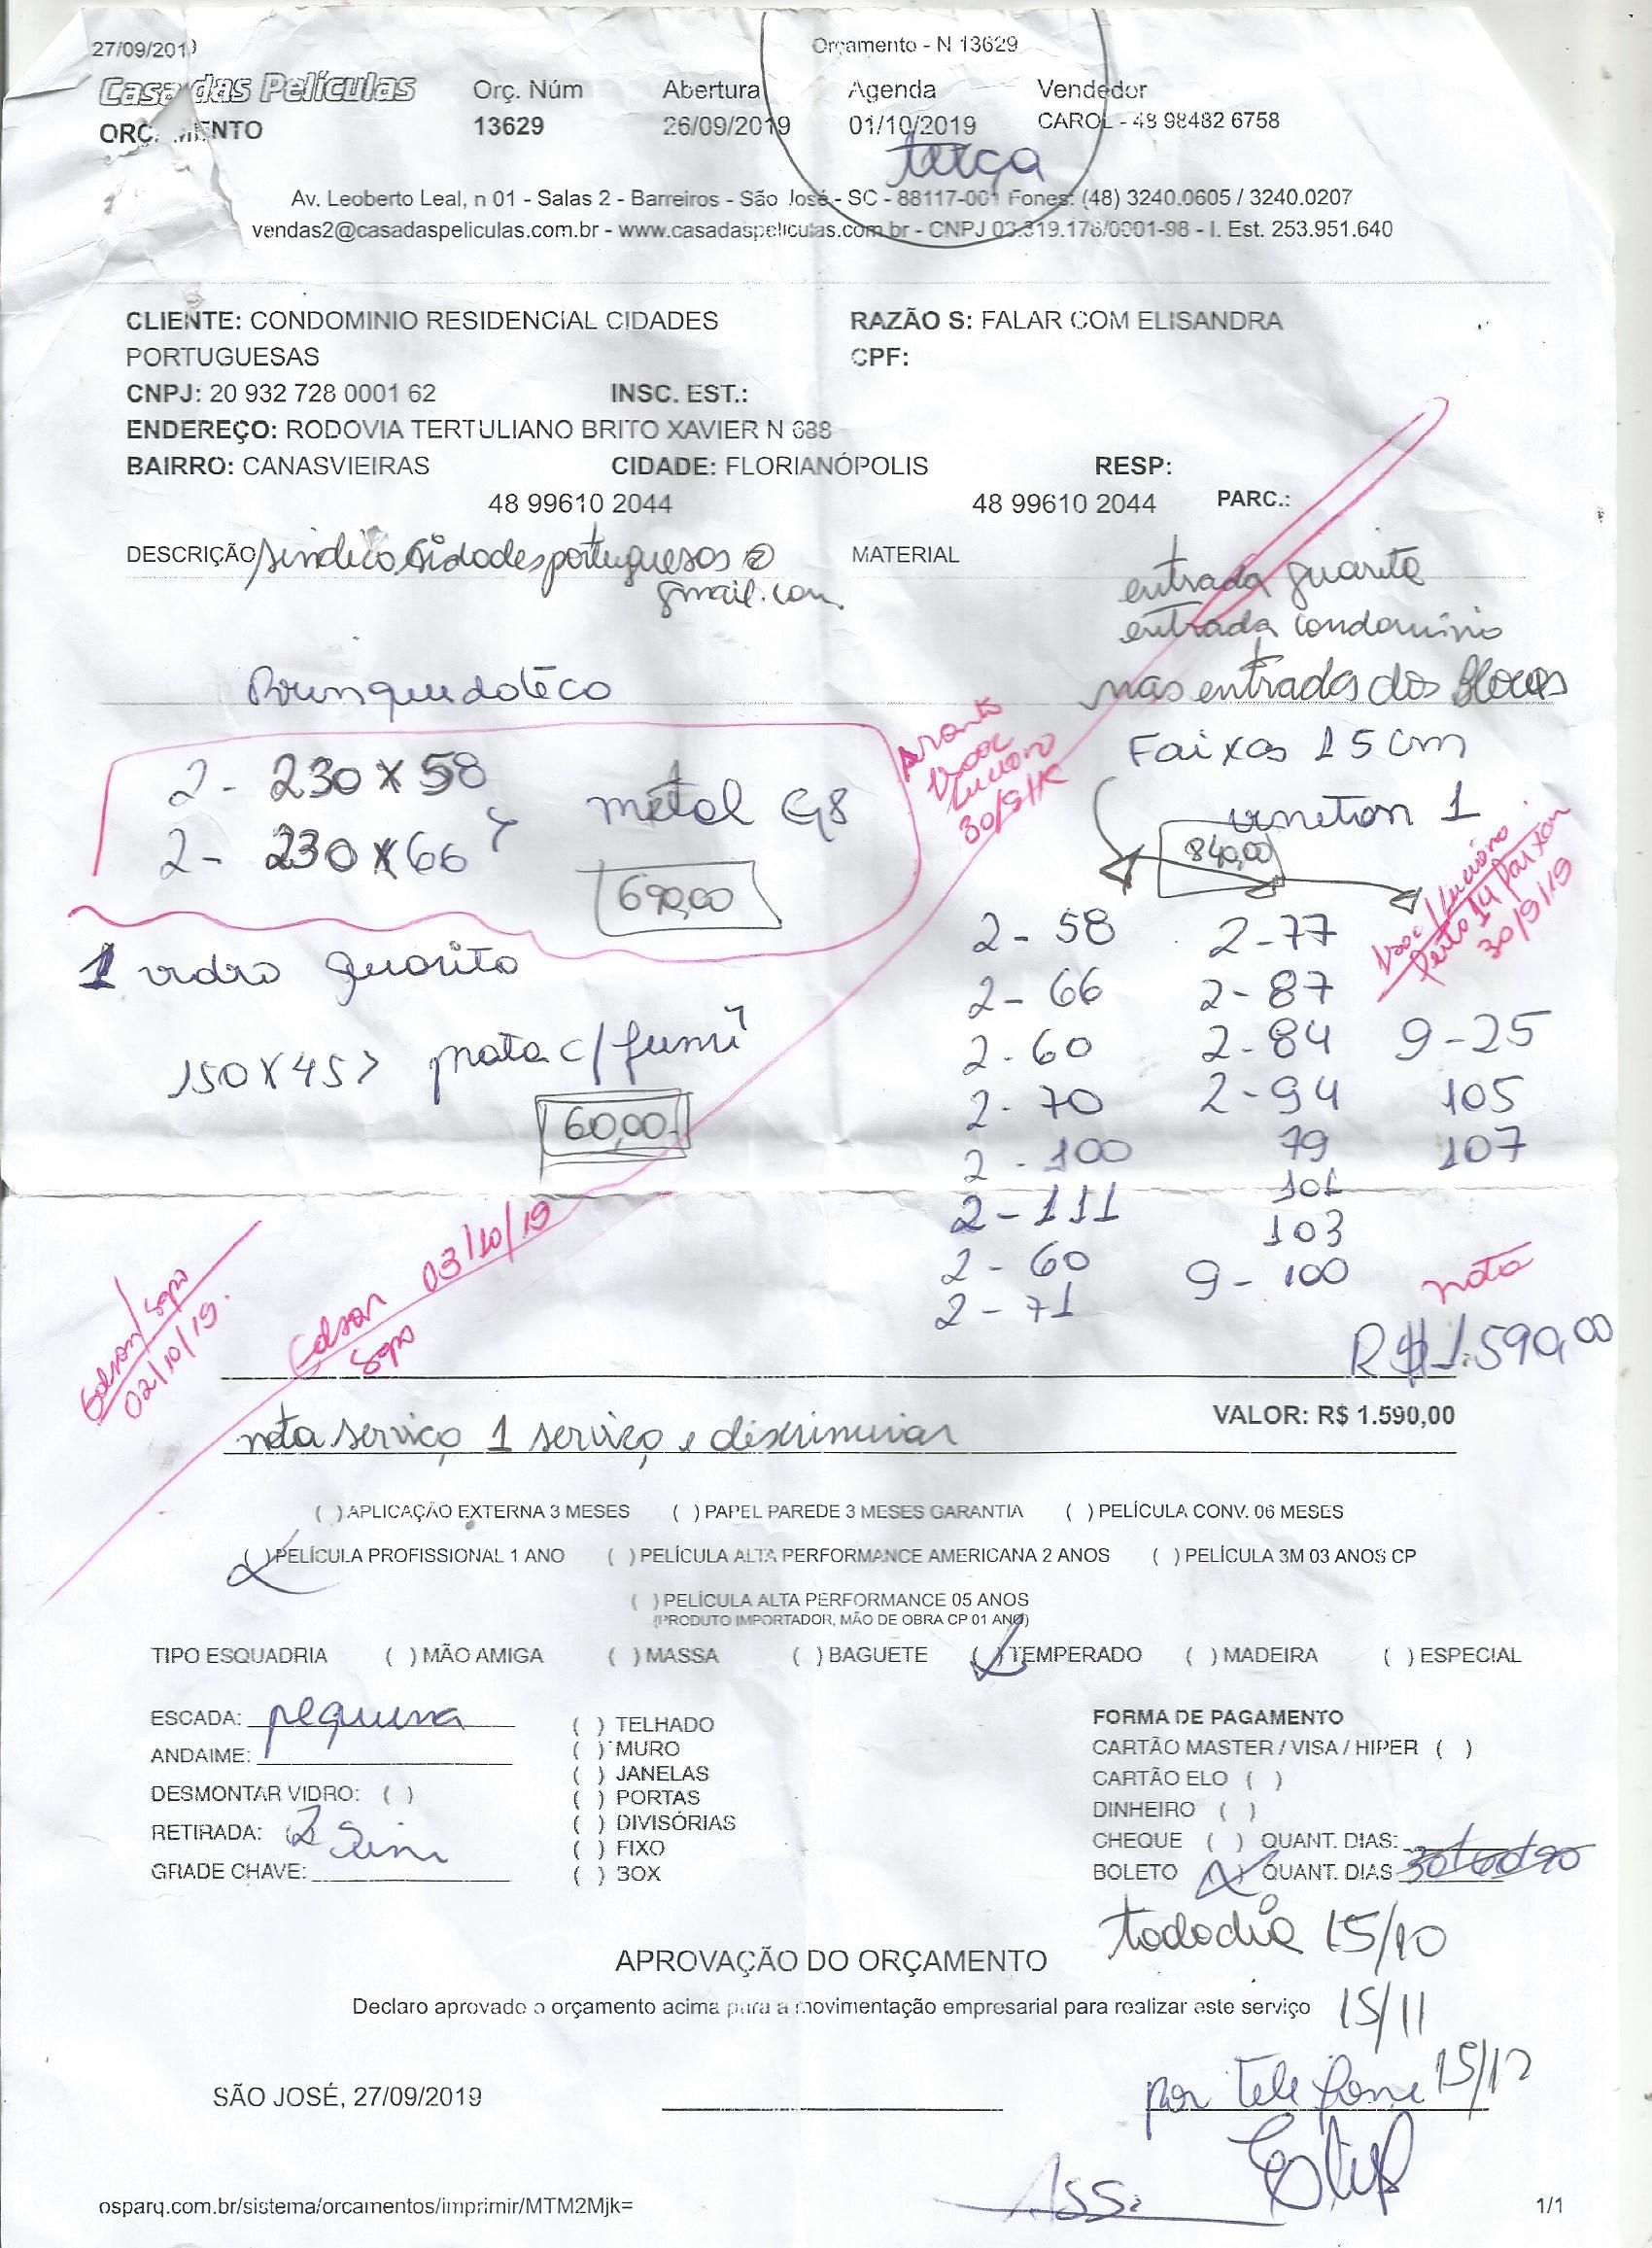 27/09/2019
Orçamento - N 13629
Casa das Películas
ORÇAMENTO
Orç. Núm
13629
Abertura
26/09/2019
Agenda
01/10/2019
terça
Vendedor
CAROL - 48 98482 6758
Av. Leoberto Leal, n 01 - Salas 2 - Barreiros - São José - SC - 88117-001 Fones: (48) 3240.0605 / 3240.0207
vendas2@casadaspeliculas.com.br - www.casadaspeliculas.com.br - CNPJ 03.319.178/0001-98 - I. Est. 253.951.640
CLIENTE: CONDOMINIO RESIDENCIAL CIDADES PORTUGUESAS
RAZÃO S: FALAR COM ELISANDRA
CPF:
CNPJ: 20 932 728 0001 62 INSC. EST.:
ENDEREÇO: RODOVIA TERTULIANO BRITO XAVIER N 688
BAIRRO: CANASVIEIRAS CIDADE: FLORIANÓPOLIS RESP:
48 99610 2044 48 99610 2044 PARC.:
DESCRIÇÃO sindico.cidadesportuguesas@
gmail.com.
MATERIAL
entrada guarita
entrada condominio
nas entradas dos Blocos
Brinquedoteca
2- 230 x 58
2- 230 x 66
metal G8
690,00
pronto
Luciano
30/9/19
Faixas 15 cm
840,00
1 vidro guarita
150 x 45 > prata c/ fumê
60,00
Luciano
30/9/19
2- 58 2-77
2- 66 2-87
2-60 2-84 9-25
2-70 2-94 105
2-100 79 107
2-111 101
2-60 103
2-71 9-100
nota
R$ 1.590,00
Edson
02/10/19.
Edson 03/10/19
VALOR: R$ 1.590,00
nota serviço 1 serviço e discriminar
( ) APLICAÇÃO EXTERNA 3 MESES ( ) PAPEL PAREDE 3 MESES GARANTIA ( ) PELÍCULA CONV. 06 MESES
( ) PELÍCULA PROFISSIONAL 1 ANO ( ) PELÍCULA ALTA PERFORMANCE AMERICANA 2 ANOS ( ) PELÍCULA 3M 03 ANOS CP
( ) PELÍCULA ALTA PERFORMANCE 05 ANOS
(PRODUTO IMPORTADOR, MÃO DE OBRA CP 01 ANO)
TIPO ESQUADRIA ( ) MÃO AMIGA ( ) MASSA ( ) BAGUETE ( ) TEMPERADO ( ) MADEIRA ( ) ESPECIAL
ESCADA: pequena
ANDAIME:
DESMONTAR VIDRO: ( )
RETIRADA: Sim
GRADE CHAVE:
( ) TELHADO
( ) MURO
( ) JANELAS
( ) PORTAS
( ) DIVISÓRIAS
( ) FIXO
( ) BOX
FORMA DE PAGAMENTO
CARTÃO MASTER / VISA / HIPER ( )
CARTÃO ELO ( )
DINHEIRO ( )
CHEQUE ( ) QUANT. DIAS:
BOLETO (X) QUANT. DIAS 30/60/90
todo dia 15/10
15/11
15/12
APROVAÇÃO DO ORÇAMENTO
Declaro aprovado o orçamento acima para a movimentação empresarial para realizar este serviço
SÃO JOSÉ, 27/09/2019
por telefone
Ass:
osparq.com.br/sistema/orcamentos/imprimir/MTM2Mjk=
1/1